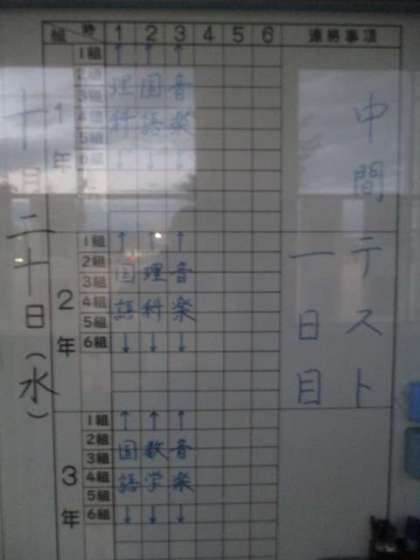 組 時 1 2 3 4 5 6 連絡事項
十月二十日(水)
1年
1組
2組
3組
4組
5組
6組
理科
国語
音楽
2年
1組
2組
3組
4組
5組
6組
国語
理科
音楽
3年
1組
2組
3組
4組
5組
6組
国語
数学
音楽
中間テスト
一日目